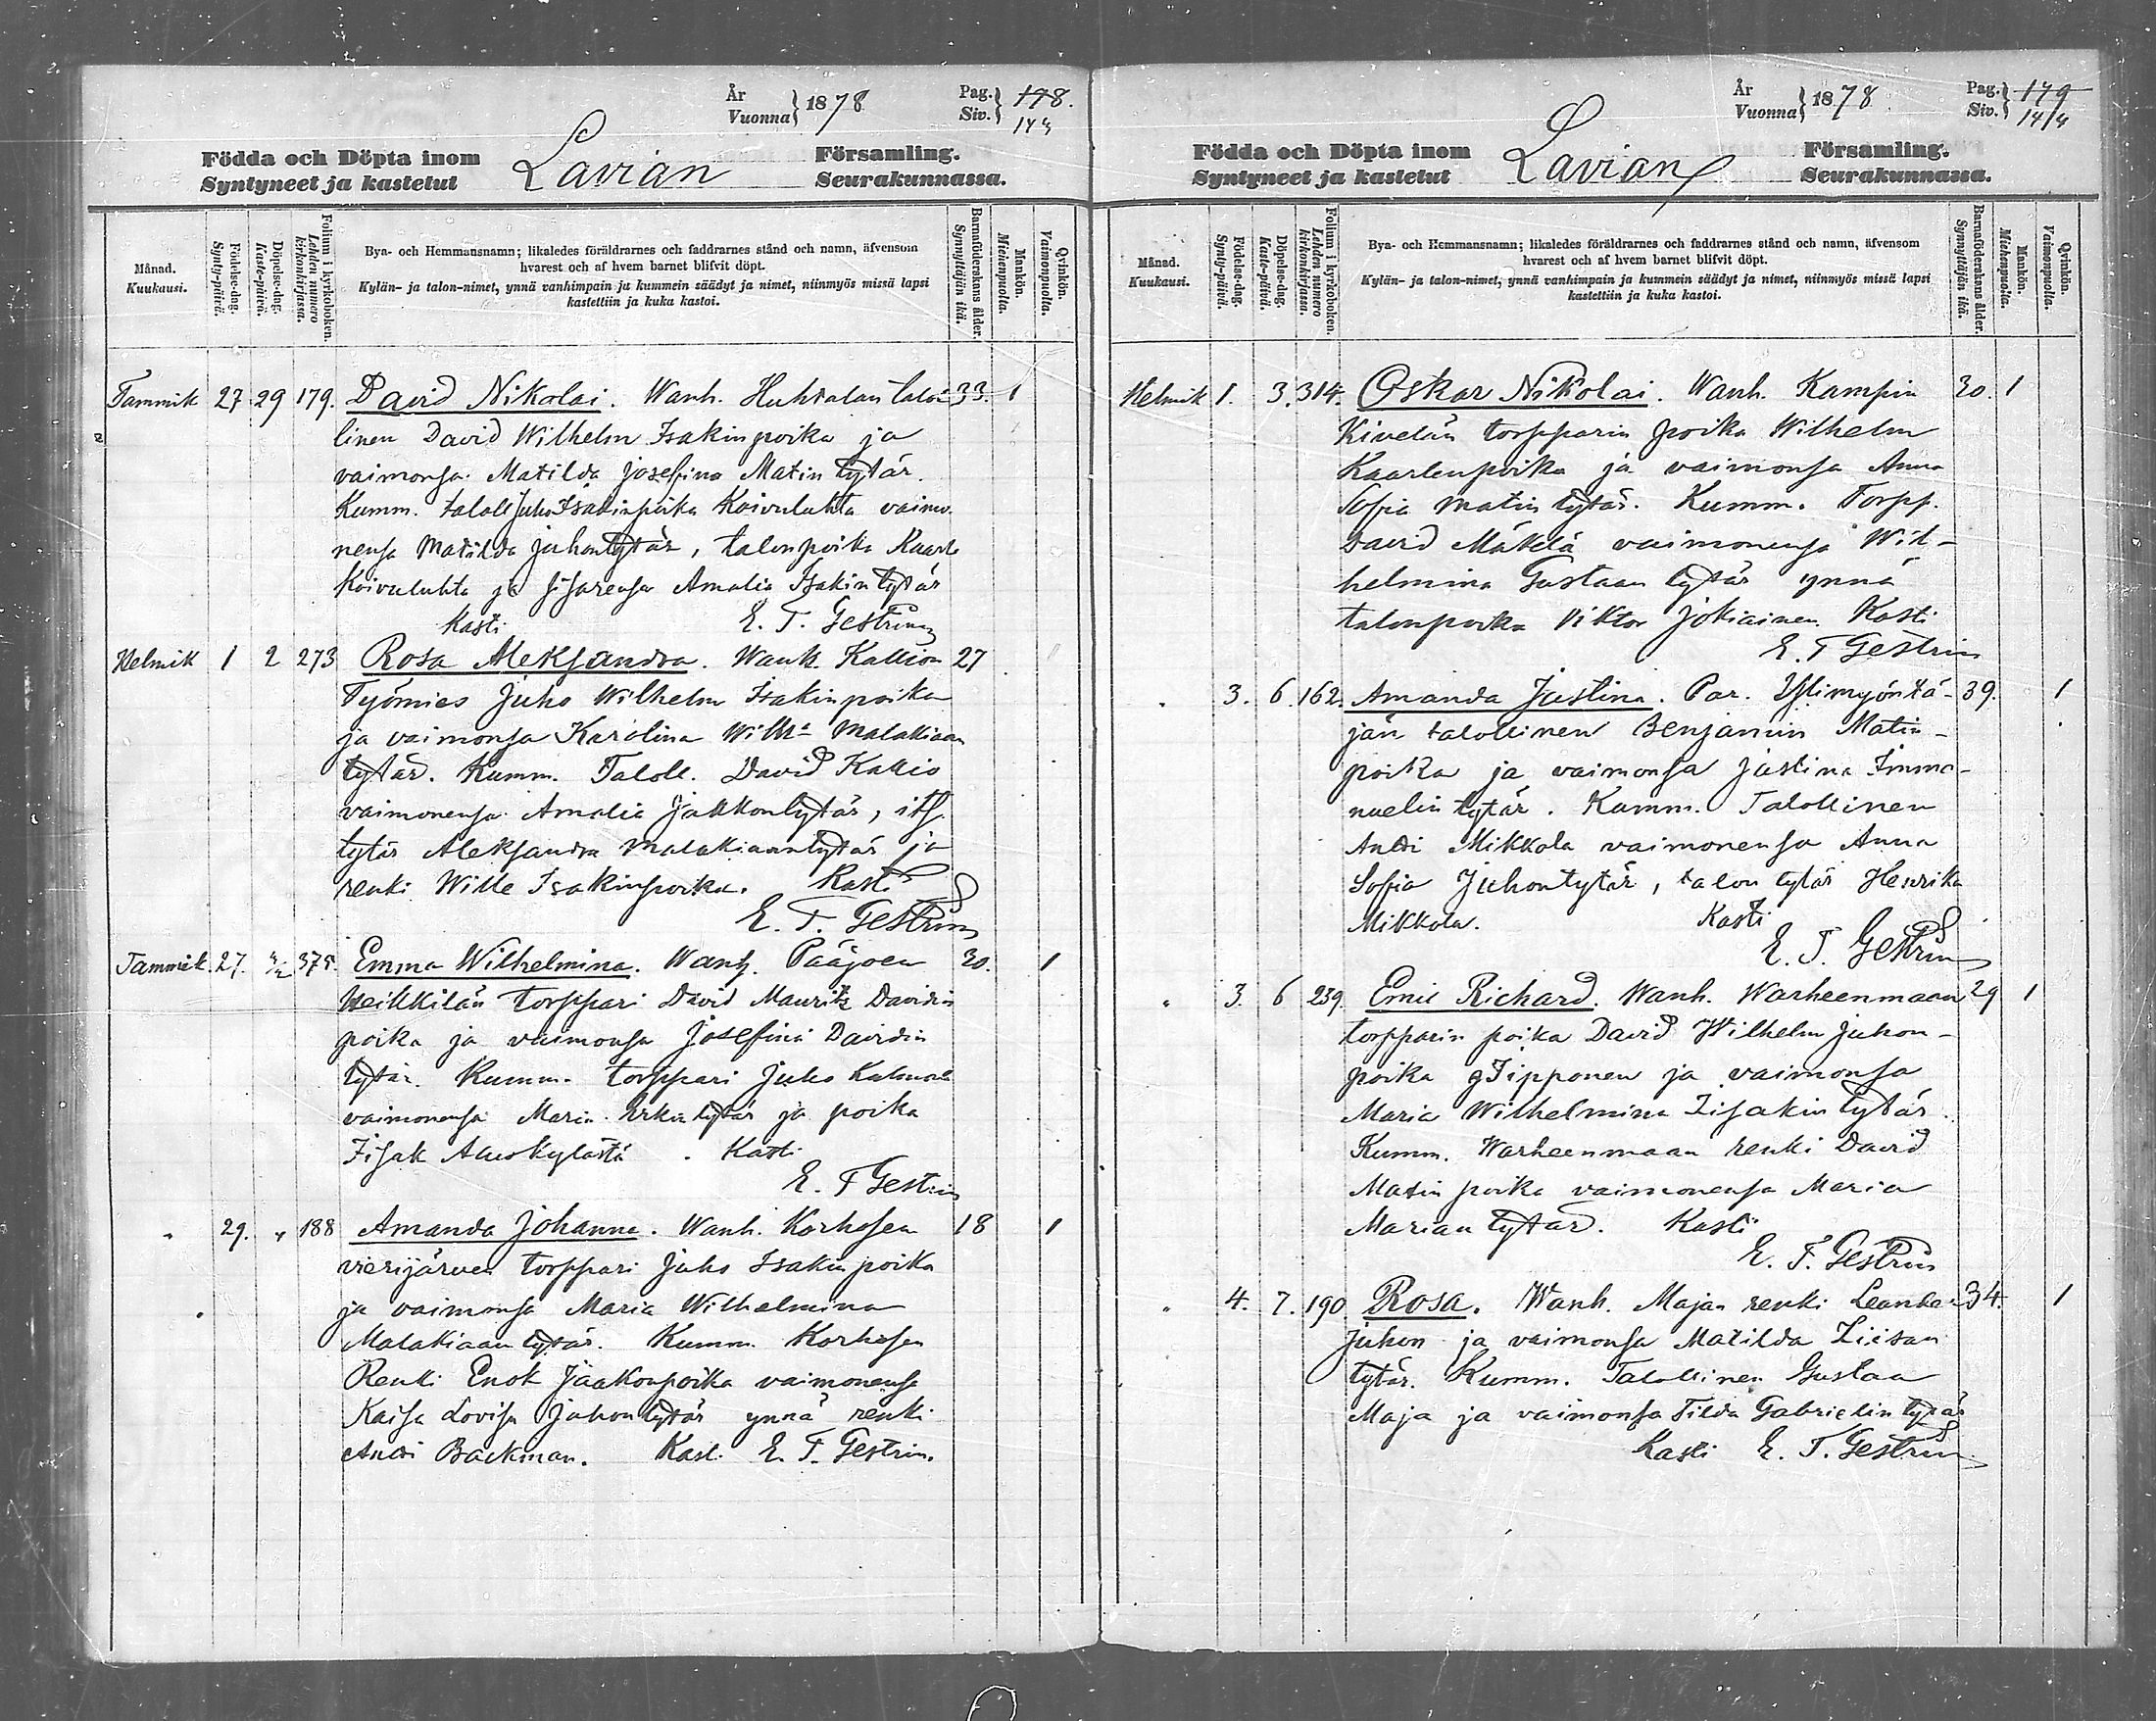 År
Vuonna} 1878
Pag.
Siv.} 178.
143
Födda och Döpta inom
Syntyneet ja kastetut
Lavian
Församling.
Seurakunnassa.
Månad.
Kuukausi.
Födelse-dag.
Synty-päivä.
Döpelse-dag.
Kaste-päivä.
Folium i kyrkoboken.
Lehden numero
kirkonkirjassa.
Bya- och Hemmansnamn; likaledes föräldrarnes och faddrarnes stånd och namn, äfvensom
hvarest och af hvem barnet blifvit döpt.
Kylän- ja talon-nimet, ynnä vanhimpain ja kummein säädyt ja nimet, niinmyös missä lapsi
kastettiin ja kuka kastoi.
Barnaföderskans ålder.
Synnyttäjän ikä.
Mankön.
Miehenpuolta.
Qvinkön.
Vaimonpuolta.
Tammik 27 29 179. David Nikolai. Wanh. Huhtalan talol- 33. 1
linen David Wilhelm Isakinpoika ja
vaimonsa Matilda Josefina Matin tytär.
Kumm. taloll Juho Isakinpoika Koivuluhta vaimo-
nensa Matilda Juhontytär, talonpoika Kaarle
Koivuluhta ja sisarensa Amalia Isakin tytär
Kasti E. T. Gestrin
Helmik 1 2 273 Rosa Aleksandra. Wanh. Kallion 27
Työmies Juho Wilhelm Isakinpoika
ja vaimonsa Karolina Wilh:a Malakiaan
tytär. Kumm. Taloll. David Kallio
vaimonensa Amalia Jaakkontytär, its.
tytär Aleksandra Malakiaantytär ja
renki Wille Isakinpoika. Kasti
E. T. Gestrin
Tammik. 27. 2/2 375. Emma Wilhelmina. Wanh. Pääjoen 30. 1
Heikkilän torppari David Mauritz Davidin
poika ja vaimonsa Josefina Davidin
tytär. Kumm. torppari Juho
vaimonensa Maria Erkin tytär ja poika
Iisak Alaskylästä. Kasti
E. T Gestrin
" 29. " 188 Amanda Johanna. Wanh. Korhosen 18 1
vierijärven torppari Juho Isakin poika
ja vaimonsa Maria Wilhelmina
Malakiaan tytär. Kumm. Korhosen
Renki Enok Jaakonpoika vaimonensa
Kaisa Lovisa Juhontytär ynnä renki
Antti Backman. Kast. E. T. Gestrin.
År
Vuonna} 1878
Pag.
Siv.} 179
144
Födda och Döpta inom
Syntyneet ja kastetut
Lavian
Församling.
Seurakunnassa.
Månad.
Kuukausi.
Födelse-dag.
Synty-päivä.
Döpelse-dag.
Kaste-päivä.
Folium i kyrkoboken.
Lehden numero
kirkonkirjassa.
Bya- och Hemmansnamn; likaledes föräldrarnes och faddrarnes stånd och namn, äfvensom
hvarest och af hvem barnet blifvit döpt.
Kylän- ja talon-nimet, ynnä vanhimpain ja kummein säädyt ja nimet, niinmyös missä lapsi
kastettiin ja kuka kastoi.
Barnaföderskans ålder.
Synnyttäjän ikä.
Mankön.
Miehenpuolta.
Qvinkön.
Vaimonpuolta.
Helmik 1. 3. 314. Oskar Nikolai. Wanh. Kampin 30. 1
Kivelän torpparin poika Wilhelm
Kaarlenpoika ja vaimonsa Anna
Sofia Matin tytär. Kumm. Torpp.
David Mäkelä vaimonensa Wil-
helmina Gustaan tytär ynnä
talonpoika Viktor Jokiainen Kasti
E. T Gestrin
" 3. 6. 162. Amanda Justina. Par. Ylimyöntä- 39. 1
jän talollinen Benjamin Matin-
poika ja vaimonsa Justina Imma-
nuelin tytär. Kumm. Talollinen
Antti Mikkola vaimonensa Anna
Sofia Juhontytär, talon tytär Henrika
Mikkola. Kasti
E. T. Gestrin
" 3. 6 239. Emil Richard. Wanh. Warheenmaan 29 1
torpparin poika David Wilhelm Juhon-
poika ja vaimonsa
Maria Wilhelmina Iisakin tytär.
Kumm. Warheenmaan renki David
Matin poika vaimonensa Maria
Marian tytär. Kasti
E. T. Gestrin
" 4. 7. 190 Rosa. Wanh. Majan renki Leander 34. 1
Juhon ja vaimonsa Matilda Liisan
tytär. Kumm. Talollinen Gustaa
Maja ja vaimonsa Tilda Gabrielin tytär
Kasti E. T. Gestrin